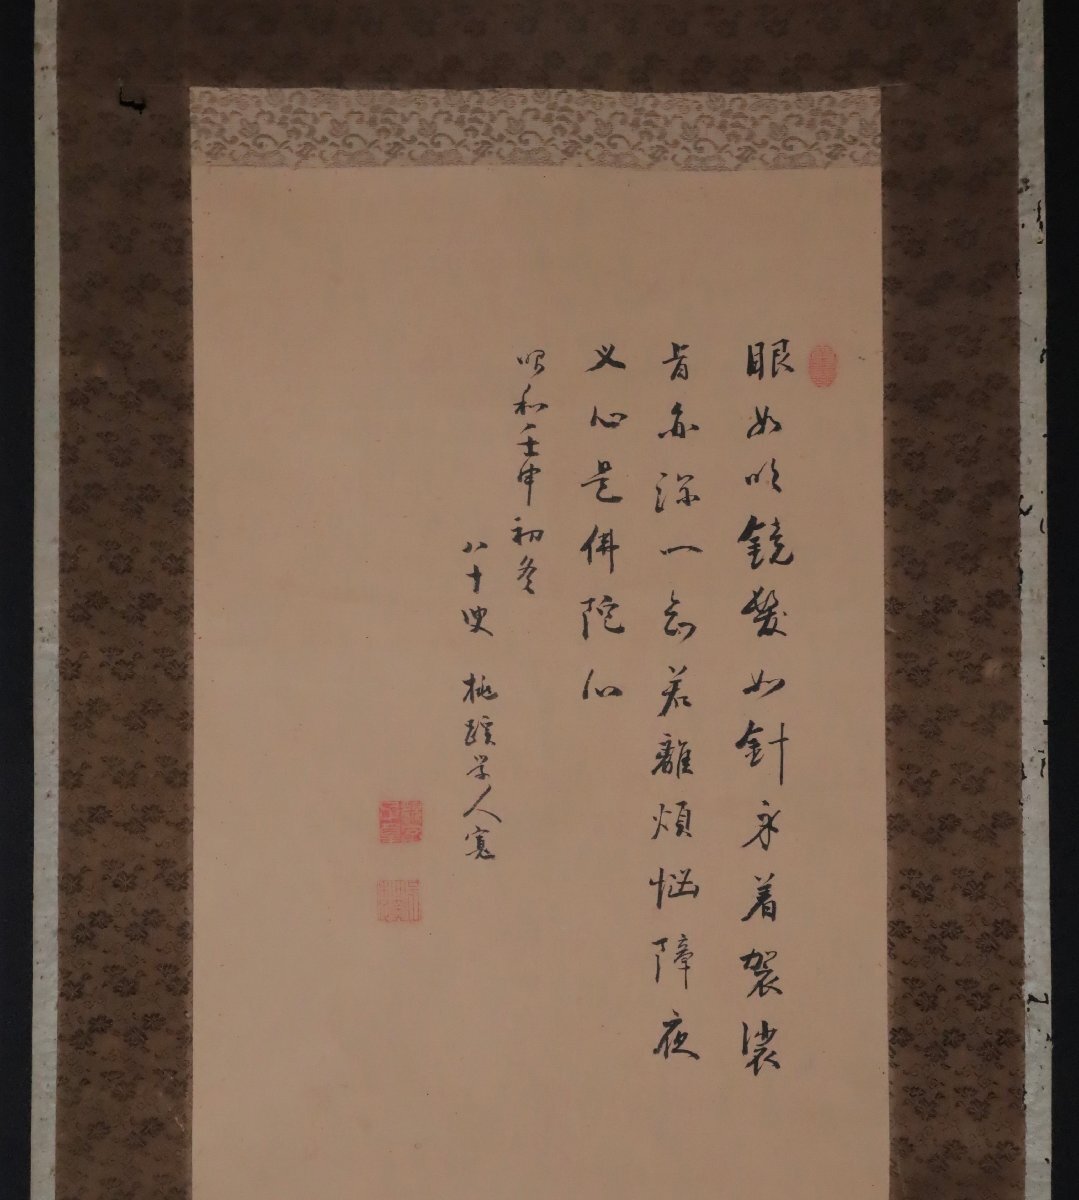 眼如明鏡髮如針永着袈裟
旨亦深一念若離煩悩障夜
叉心是佛陀心
昭和壬申初冬
八十叟 桃蹊学人